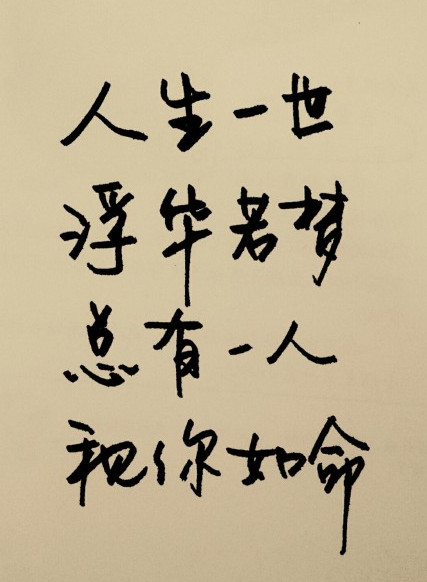 人生一世
浮华若梦
总有一人
视你如命